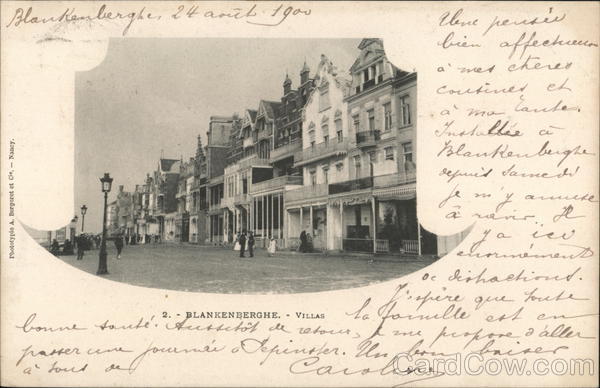 Blankenberghe 24 août 1900
Une pensée
bien affectueuse
à mes chères
cousines et
à ma Tante.
Installée à
Blankenberghe
depuis Samedi
je m'y amuse
à ravir. Il
y a ici
enormément
de distractions.
J'espère que toute
la famille est en
bonne santé. Aussitôt de retour, je me propose d'aller
passer une journée à Pepinster. Un bon baiser
à tous de
Phototypie A. Bergeret et Cie. - Nancy.
2. - BLANKENBERGHE. - VILLAS
CardCow.com